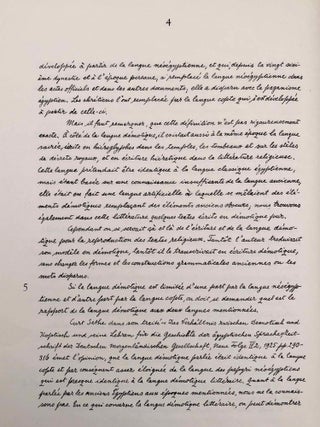 4
développée à partir de la langue néoégyptienne, et qui depuis la vingt sixi-
ème dynastie et à l'époque persane, a remplacé la langue néoégyptienne dans
les actes officiels et dans les autres documents, elle a disparu avec le paganisme
égyptien. Les chrétiens l'ont remplacée par la langue copte qui s'est développée
à partir de celle-ci.
Mais, il faut remarquer, que cette définition n'est pas rigoureusement
exacte. À côté de la langue démotique, il existait aussi à la même époque la langue
sacrée, écrite en hiéroglyphes dans les temples, les tombeaux et sur les stèles
de décrets royaux, et en écriture hiératique dans la littérature religieuse.
Cette langue prétendait être identique à la langue classique égyptienne,
mais étant basée sur une connaissance insuffisante de la langue ancienne,
elle était en fait une langue artificielle à laquelle se mêlaient des élé-
ments démotiques remplaçant des éléments anciens obscurs, nous trouvons
également dans cette littérature quelques textes écrits en démotique pur.
Cependant on se servait çà et là de l'écriture et de la langue démo-
tique pour la reproduction des textes religieux. Tantôt l'auteur traduisait
son modèle en démotique, tantôt il le transcrivait en écriture démotique,
sans changer les formes et les constructions grammaticales anciennes ou les
mots disparus.
5 Si la langue démotique est limitée d'une part par la langue néoégyp-
tienne et d'autre part par la langue copte, on doit se demander quel est le
rapport de la langue démotique avec deux langues mentionnées.
Curt Sethe dans son article: Das Verhältnis zwischen Demotisch und
Koptisch und seine Lehren für die Geschichte der ägyptischen Sprache, Zeit-
schrift der Deutschen Morgenländischen Gesellschaft, Neue Folge 1925 pp. 290-
316 émet l'opinion, que la langue démotique parlée était identique à la langue
copte et par conséquent assez éloignée de la langue des papyri néoégyptiens
qui est presque identique à la langue démotique littéraire. Quant à la langue
parlée par les anciens Égyptiens aux époques mentionnées, nous ne la connais-
sons pas. En ce qui concerne la langue démotique littéraire, on peut démontrer